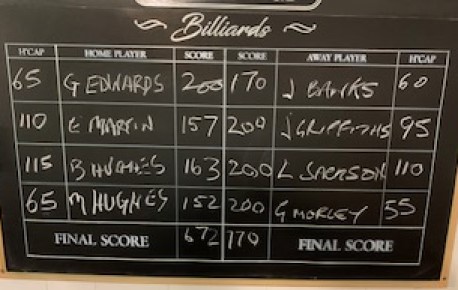 Billiards
H'CAP HOME PLAYER SCORE SCORE AWAY PLAYER H'CAP
65 G EDWARDS 200 170 J BANKS 60
110 E MARTIN 157 200 J GRIFFITHS 95
115 B HUGHES 163 200 L 110
65 M HUGHES 152 200 G MORLEY 55
FINAL SCORE 672 770 FINAL SCORE